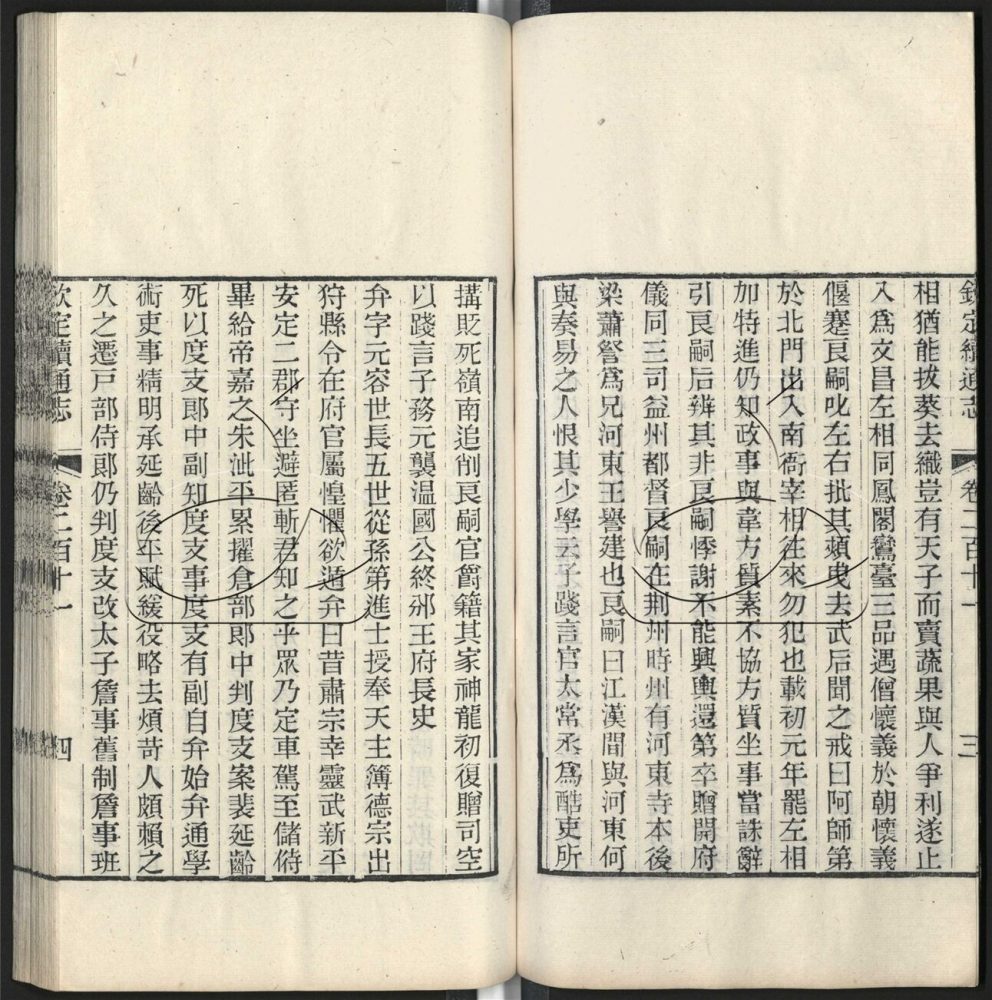 欽定續通志 卷二百十一 三
相猶能拔葵去織豈有天子而賣蔬果與人爭利遂止
入爲文昌左相同鳳閣鸞臺三品遇僧懷義於朝懷義
偃蹇良嗣叱左右批其頰曳去武后聞之戒曰阿師第
於北門出入南衙宰相往來勿犯也載初元年罷左相
加特進仍知政事與韋方質素不協方質坐事當誅辭
引良嗣后辨其非良嗣悸謝不能興輿還第卒贈開府
儀同三司益州都督良嗣在荆州時州有河東寺本後
梁蕭詧爲兄河東王譽建也良嗣曰江漢間與河東何
與奏易之人恨其少學云子踐言官太常丞爲酷吏所
搆貶死嶺南追削良嗣官爵籍其家神龍初復贈司空
以踐言子務元襲溫國公終邠王府長史
弁字元容世長五世從孫第進士授奉天主簿德宗出
狩縣令在府官屬惶懼欲遁弁曰昔肅宗幸靈武新平
安定二郡守坐避匿斬君知之乎眾乃定車駕至儲偫
畢給帝嘉之朱泚平累擢倉部郎中判度支案裴延齡
死以度支郎中副知度支事度支有副自弁始弁通學
術吏事精明承延齡後平賦緩役略去煩苛人頗賴之
久之遷戸部侍郎仍判度支改太子詹事舊制詹事班
欽定續通志 卷二百十一 四